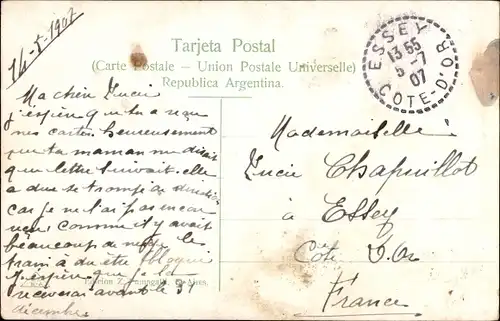 14-5-1907
Tarjeta Postal
(Carte Postale – Union Postale Universelle)
Republica Argentina.
ESSEY
13 55
5 -7
07
COTE-D'OR
Ma chère Lucie
J'espère que tu a reçu
mes cartes heureusement
que ta maman me disait
que lettre suivait. elle
a due se trompé de
car je ne l'ai pas encore
comme il y avait
beaucoup de neige le
train à du être bloqué
J'espère que je la
recevrai avant le 31
décembre
Mademoiselle
Lucie Chapuillot
à Essey
Côte D.Or
France
Aires.